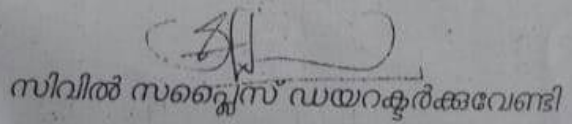 സിവിൽ സപ്ലൈസ് ഡയറക്ടർക്കുവേണ്ടി